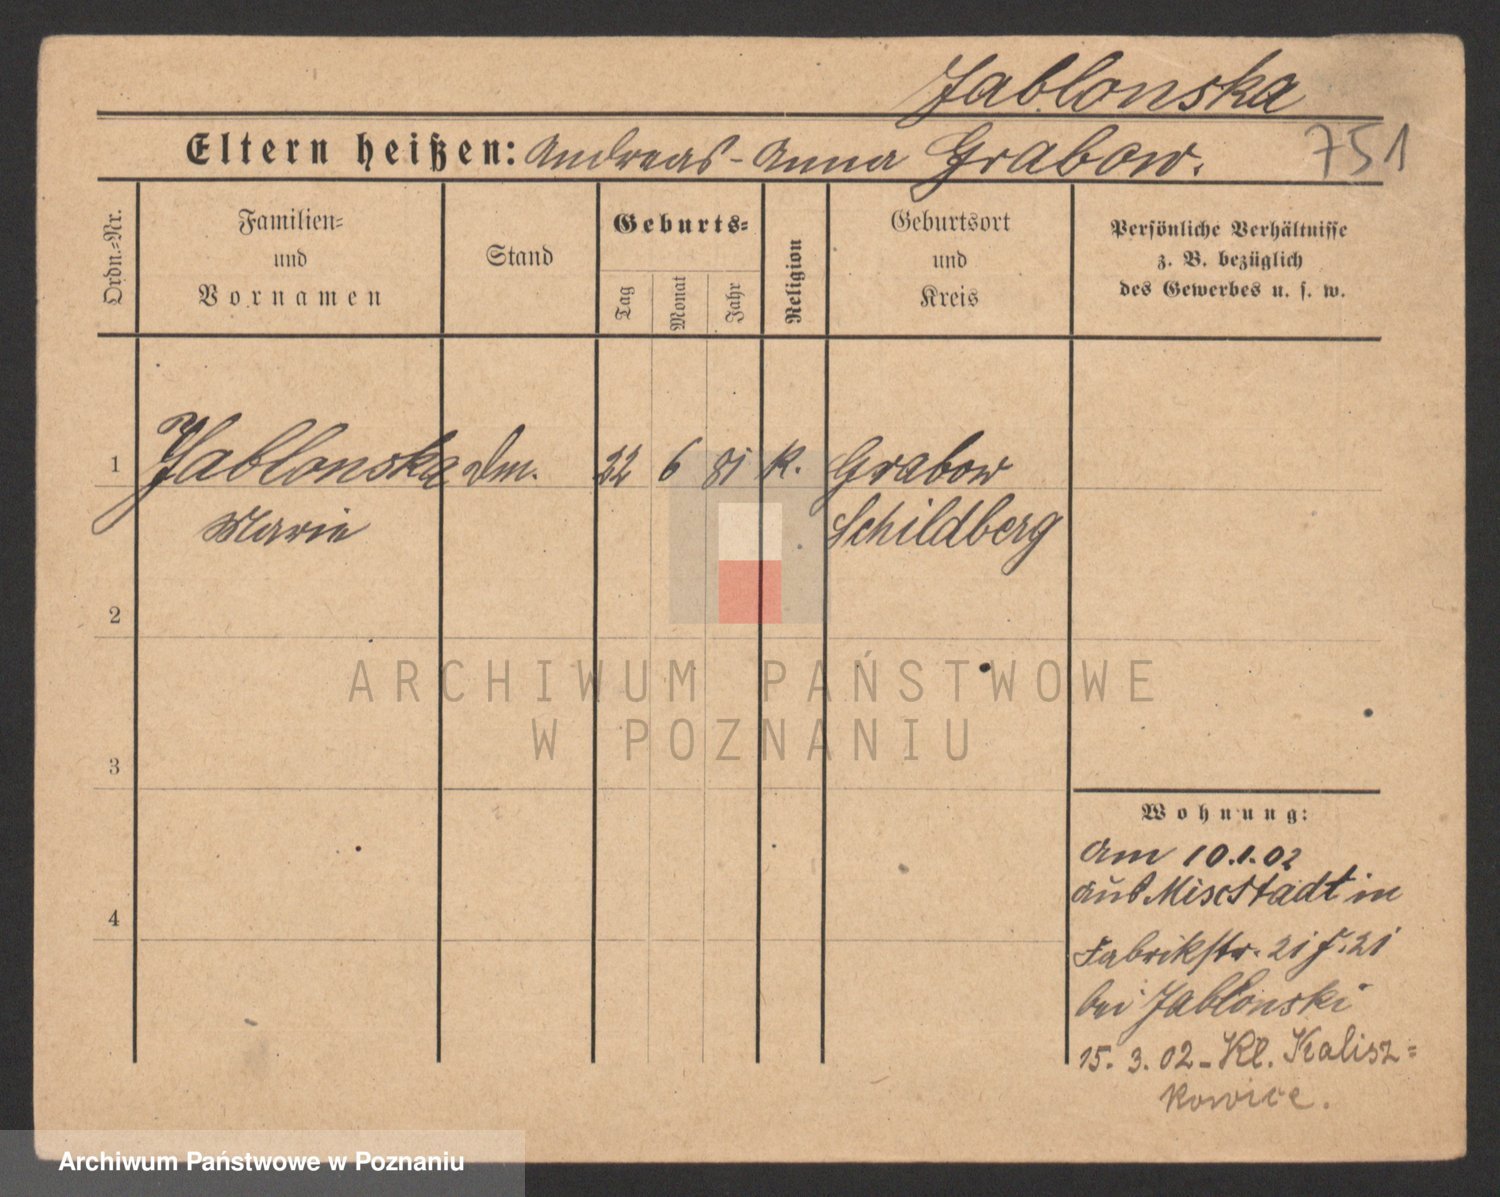 Jablonska
Eltern heißen: Andreas - Anna Grabow.
751
Ordn.=Nr.
Familien=
und
Vornamen
Stand
Geburts=
Tag
Monat
Jahr
Religion
Geburtsort
und
Kreis
Persönliche Verhältnisse
z. B. bezüglich
des Gewerbes u. s. w.
1
Jablonska
Marie
Dm.
22 6 81 K.
Grabow
Schildberg
2
3
4
ARCHIWUM PAŃSTWOWE
W POZNANIU
Wohnung:
am 10.1.02
aus Mixstadt in
Fabrikstr. 21 21
bei Jablonski
15. 3. 02 - Kl. Kalisz=
kowice.
Archiwum Państwowe w Poznaniu